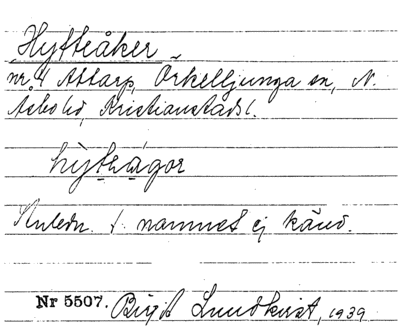 Hyfteåker
nr 4 Attarp, Örkelljunga sn, N.
Åsbo hd, Kristianstads l.
Anledn. t. namnet ej känd.
Nr 5507. Birgit Lundkvist, 1939